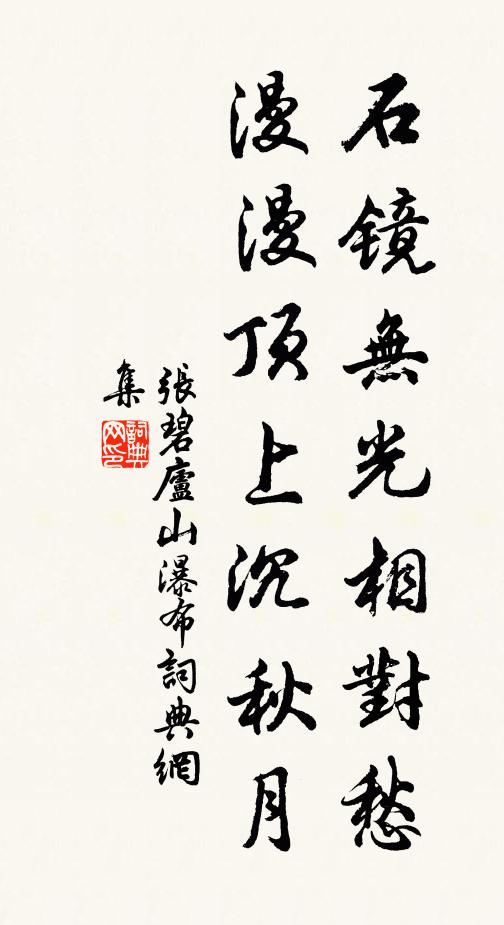 石鏡無光相對愁
漫漫頂上沉秋月
張碧廬山瀑布詞典網
集
詞典
网印